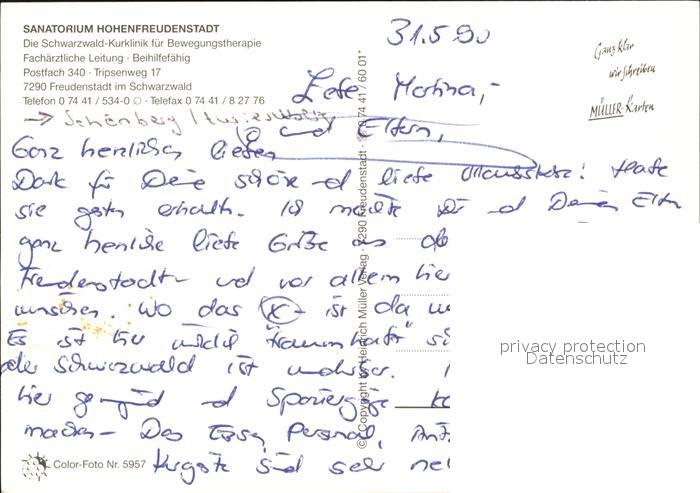 SANATORIUM HOHENFREUDENSTADT
Die Schwarzwald-Kurklinik für Bewegungstherapie
Fachärztliche Leitung · Beihilfefähig
Postfach 340 · Tripsenweg 17
7290 Freudenstadt im Schwarzwald
Telefon 0 74 41 / 534-0 · Telefax 0 74 41 / 8 27 76
31.5.90
Ganz klar
wir schreiben
MÜLLER-Karten
Liebe Martina,
→ Schömberg
und Eltern,
Ganz herzlichen lieben
Dank für Deine schöne und liebe Habe
sie gestern erhalten. Ich möchte Dir und Deinen Eltern
ganz herzliche liebe Grüße aus
Freudenstadt und vor allem hier
wünschen. Wo das ist da
Es ist hier "traumhaft"
der Schwarzwald ist
hier und Spaziergänge
machen. Das Essen, Personal,
Kurgäste sind sehr
© Copyright by Heinrich Müller Verlag · 7290 Freudenstadt · 0 74 41 / 60 01*
privacy protection
Datenschutz
Color-Foto Nr. 5957